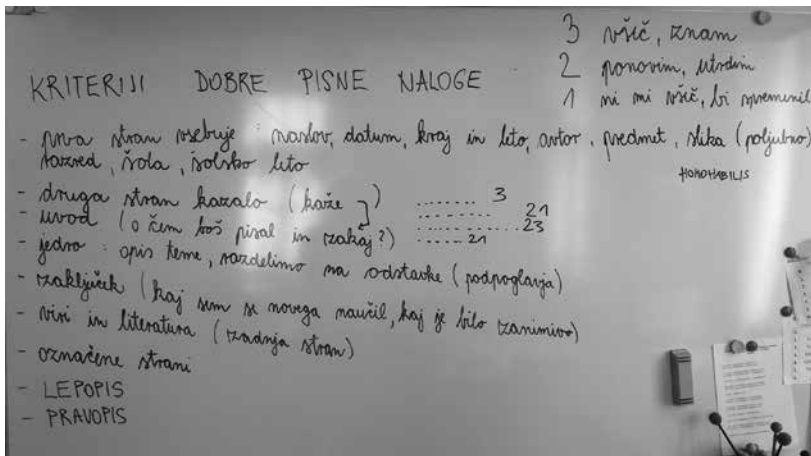 3 všič, znam
2 ponovim, utrdim
1 ni mi všič, bi spremenil
KRITERIJI DOBRE PISNE NALOGE
- prva stran vsebuje : naslov, datum, kraj in leto, avtor, predmet, slika (poljubno)
razred, šola, šolsko leto
HOMOHABILIS
- druga stran kazalo (kaže ) ....... 3
- uvod (o čem boš pisal in zakaj?) ........ 21
....... 23
...... 21
- jedro : opis teme, razdelimo na odstavke (podpoglavja)
- zaključek (kaj sem se novega naučil, kaj je bilo zanimivo)
- viri in literatura (zadnja stran)
- označene strani
- LEPOPIS
- PRAVOPIS